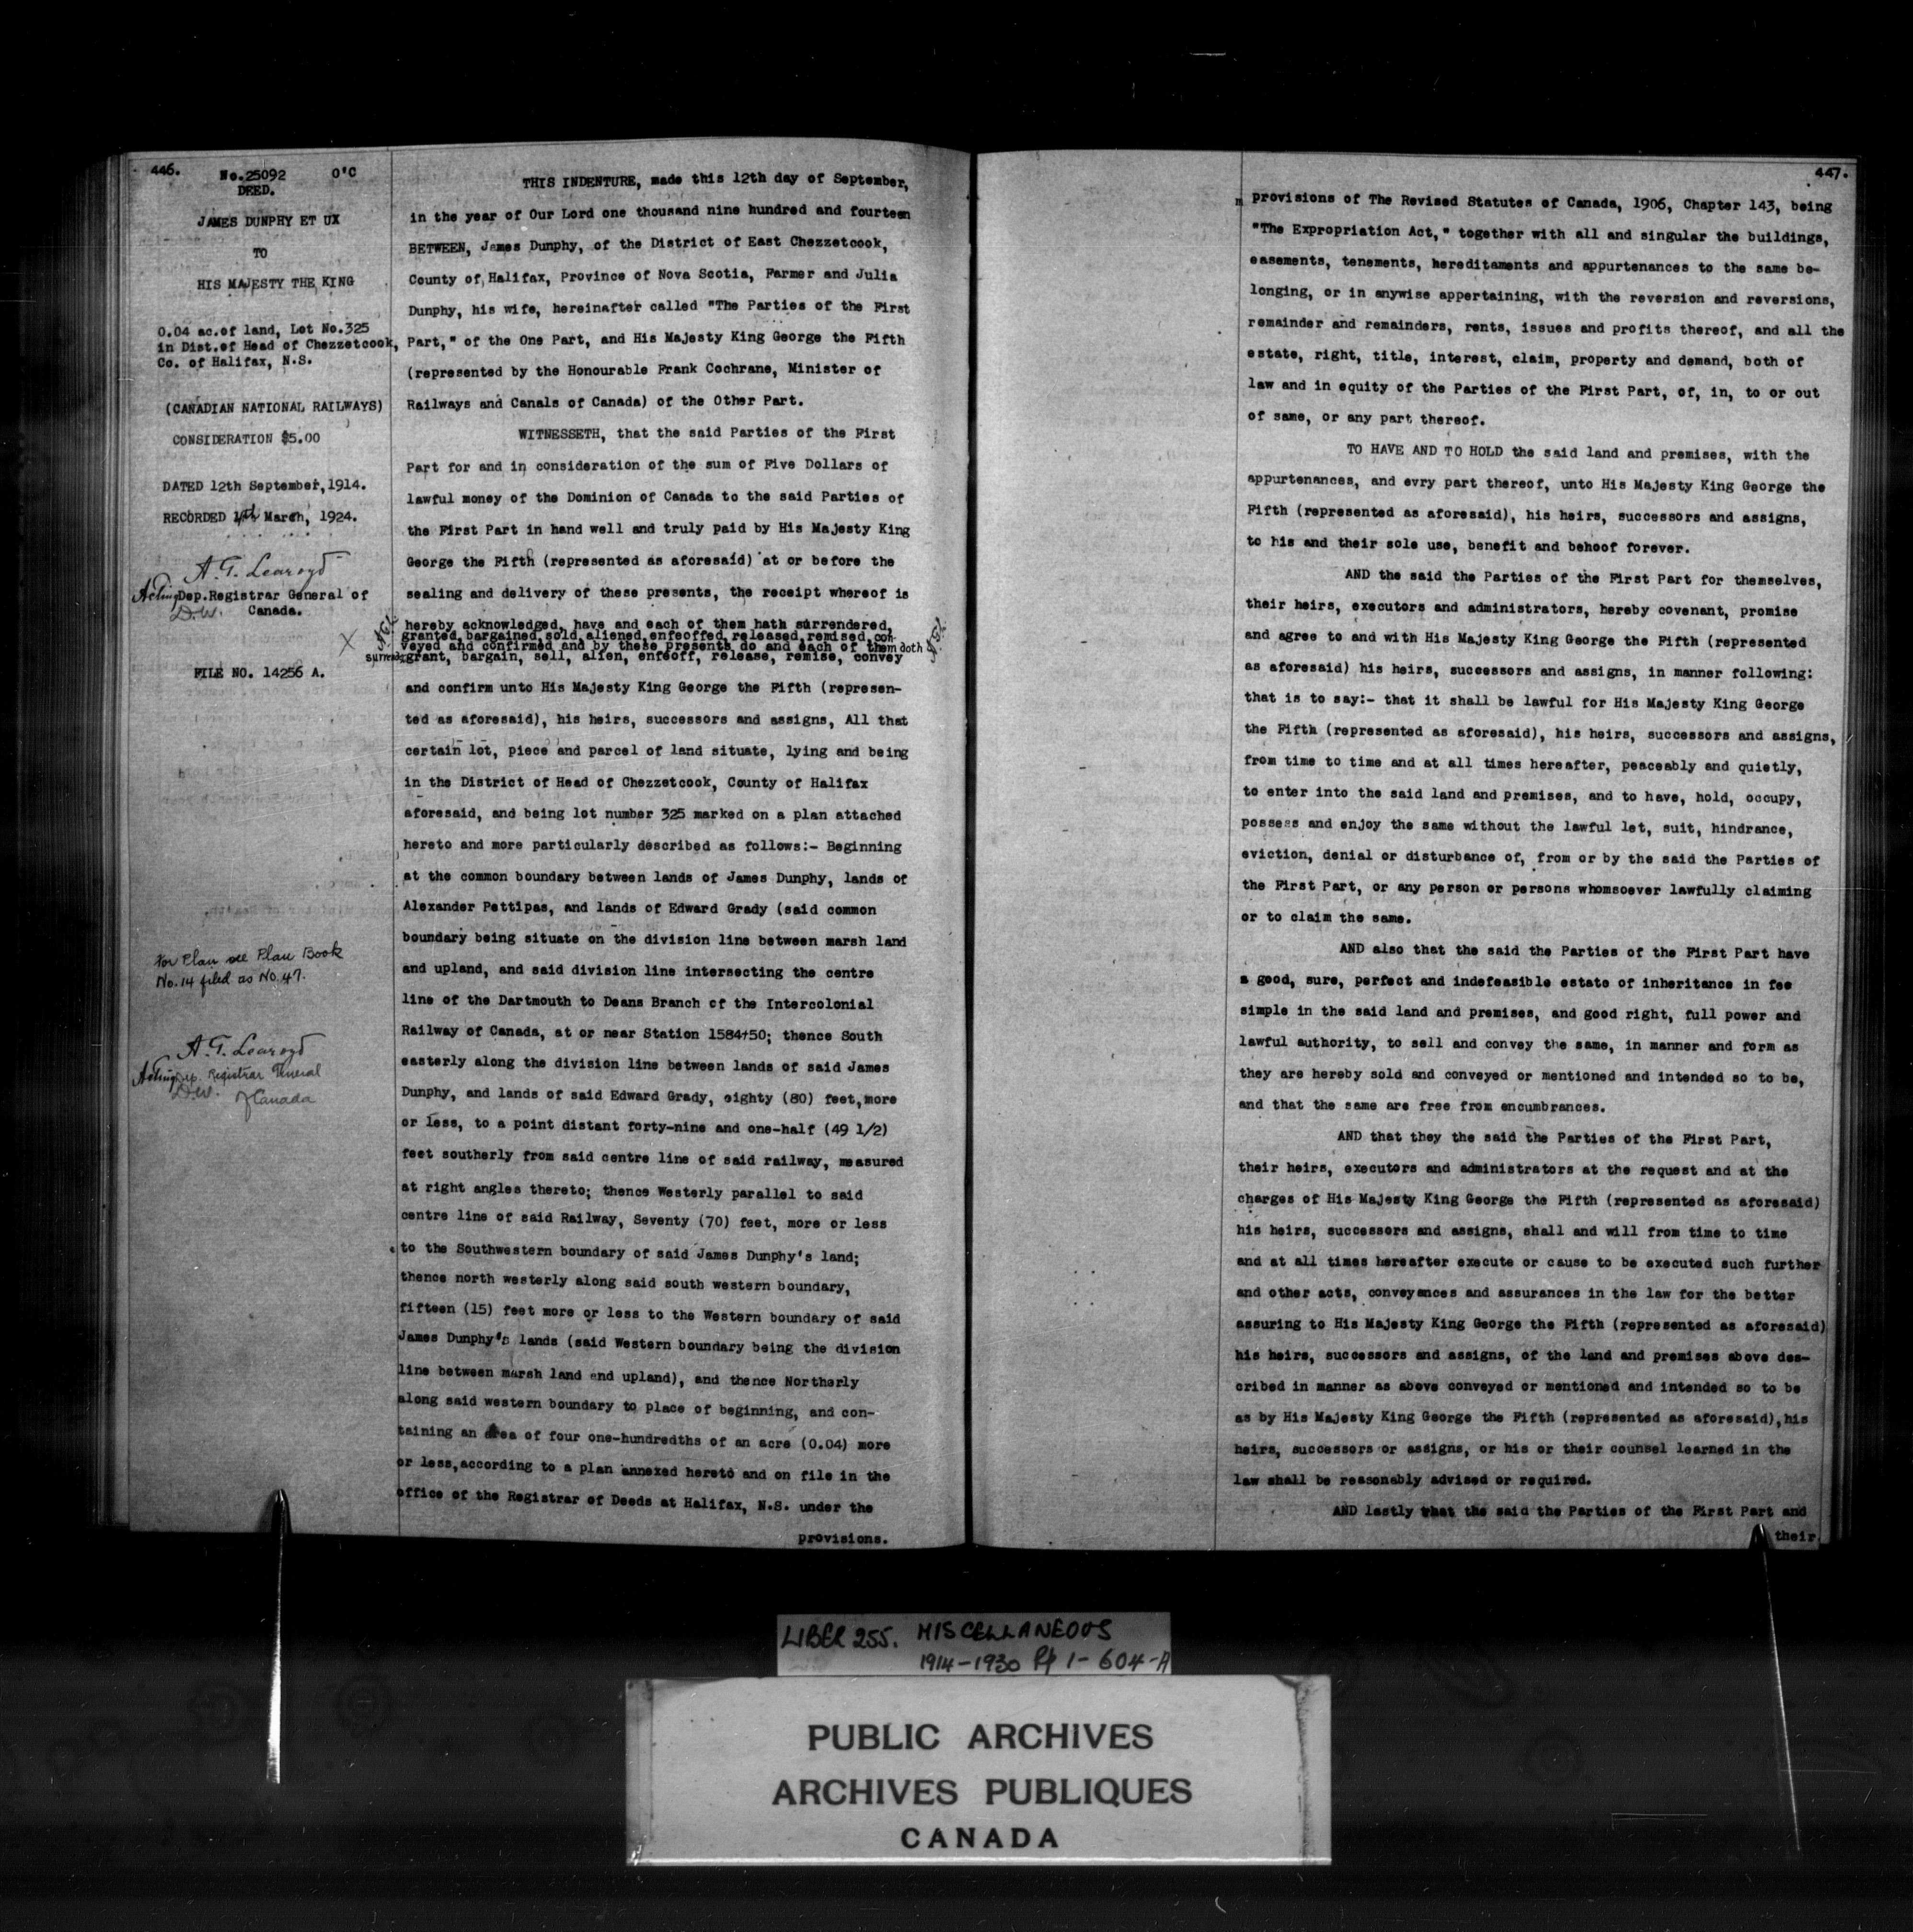 446.
No.25092 O'C
DEED.
JAMES DUNPHY ET UX
TO
HIS MAJESTY THE KING
0.04 ac.of land, Lot No.325
in Dist.of Head of Chezzetcook,
Co. of Halifax, N.S.
(CANADIAN NATIONAL RAILWAYS)
CONSIDERATION $5.00
DATED 12th September,1914.
RECORDED March, 1924.
A. T. Learoyd
Acting Dep.Registrar General of
D.W. Canada.
FILE NO. 14256 A.
For Plan see Plan Book
No. 14 filed as No. 47.
A. T. Learoyd
Acting Dep. Registrar General
D.W. of Canada
THIS INDENTURE, made this 12th day of September,
in the year of Our Lord one thousand nine hundred and fourteen
BETWEEN, James Dunphy, of the District of East Chezzetcook,
County of Halifax, Province of Nova Scotia, Farmer and Julia
Dunphy, his wife, hereinafter called "The Parties of the First
Part," of the One Part, and His Majesty King George the Fifth
(represented by the Honourable Frank Cochrane, Minister of
Railways and Canals of Canada) of the Other Part.
WITNESSETH, that the said Parties of the First
Part for and in consideration of the sum of Five Dollars of
lawful money of the Dominion of Canada to the said Parties of
the First Part in hand well and truly paid by His Majesty King
George the Fifth (represented as aforesaid) at or before the
sealing and delivery of these presents, the receipt whereof is
hereby acknowledged, have and each of them hath surrendered,
granted,bargained,sold,aliened,enfeoffed,released,remised,con-
X veyed and confirmed and by these presents do and each of them doth
surrender grant, bargain, sell, alien, enfeoff, release, remise, convey
and confirm unto His Majesty King George the Fifth (represen-
ted as aforesaid), his heirs, successors and assigns, All that
certain lot, piece and parcel of land situate, lying and being
in the District of Head of Chezzetcook, County of Halifax
aforesaid, and being lot number 325 marked on a plan attached
hereto and more particularly described as follows:- Beginning
at the common boundary between lands of James Dunphy, lands of
Alexander Pettipas, and lands of Edward Grady (said common
boundary being situate on the division line between marsh land
and upland, and said division line intersecting the centre
line of the Dartmouth to Deans Branch of the Intercolonial
Railway of Canada, at or near Station 1584+50; thence South
easterly along the division line between lands of said James
Dunphy, and lands of said Edward Grady, eighty (80) feet,more
or less, to a point distant forty-nine and one-half (49 1/2)
feet southerly from said centre line of said railway, measured
at right angles thereto; thence Westerly parallel to said
centre line of said Railway, Seventy (70) feet, more or less
to the Southwestern boundary of said James Dunphy's land;
thence north westerly along said south western boundary,
fifteen (15) feet more or less to the Western boundary of said
James Dunphy's lands (said Western boundary being the division
line between marsh land and upland), and thence Northerly
along said western boundary to place of beginning, and con-
taining an area of four one-hundredths of an acre (0.04) more
or less,according to a plan annexed hereto and on file in the
office of the Registrar of Deeds at Halifax, N.S. under the
provisions.
447.
provisions of The Revised Statutes of Canada, 1906, Chapter 143, being
"The Expropriation Act," together with all and singular the buildings,
easements, tenements, hereditaments and appurtenances to the same be-
longing, or in anywise appertaining, with the reversion and reversions,
remainder and remainders, rents, issues and profits thereof, and all the
estate, right, title, interest, claim, property and demand, both of
law and in equity of the Parties of the First Part, of, in, to or out
of same, or any part thereof.
TO HAVE AND TO HOLD the said land and premises, with the
appurtenances, and evry part thereof, unto His Majesty King George the
Fifth (represented as aforesaid), his heirs, successors and assigns,
to his and their sole use, benefit and behoof forever.
AND the said the Parties of the First Part for themselves,
their heirs, executors and administrators, hereby covenant, promise
and agree to and with His Majesty King George the Fifth (represented
as aforesaid) his heirs, successors and assigns, in manner following:
that is to say:- that it shall be lawful for His Majesty King George
the Fifth (represented as aforesaid), his heirs, successors and assigns,
from time to time and at all times hereafter, peaceably and quietly,
to enter into the said land and premises, and to have, hold, occupy,
possess and enjoy the same without the lawful let, suit, hindrance,
eviction, denial or disturbance of, from or by the said the Parties of
the First Part, or any person or persons whomsoever lawfully claiming
or to claim the same.
AND also that the said the Parties of the First Part have
a good, sure, perfect and indefeasible estate of inheritance in fee
simple in the said land and premises, and good right, full power and
lawful authority, to sell and convey the same, in manner and form as
they are hereby sold and conveyed or mentioned and intended so to be,
and that the same are free from encumbrances.
AND that they the said the Parties of the First Part,
their heirs, executors and administrators at the request and at the
charges of His Majesty King George the Fifth (represented as aforesaid)
his heirs, successors and assigns, shall and will from time to time
and at all times hereafter execute or cause to be executed such further
and other acts, conveyances and assurances in the law for the better
assuring to His Majesty King George the Fifth (represented as aforesaid)
his heirs, successors and assigns, of the land and premises above des-
cribed in manner as above conveyed or mentioned and intended so to be
as by His Majesty King George the Fifth (represented as aforesaid),his
heirs, successors or assigns, or his or their counsel learned in the
law shall be reasonably advised or required.
AND lastly that the said the Parties of the First Part and
their
LIBER 255. MISCELLANEOUS
1914-1930 Pp 1-604-A
PUBLIC ARCHIVES
ARCHIVES PUBLIQUES
CANADA